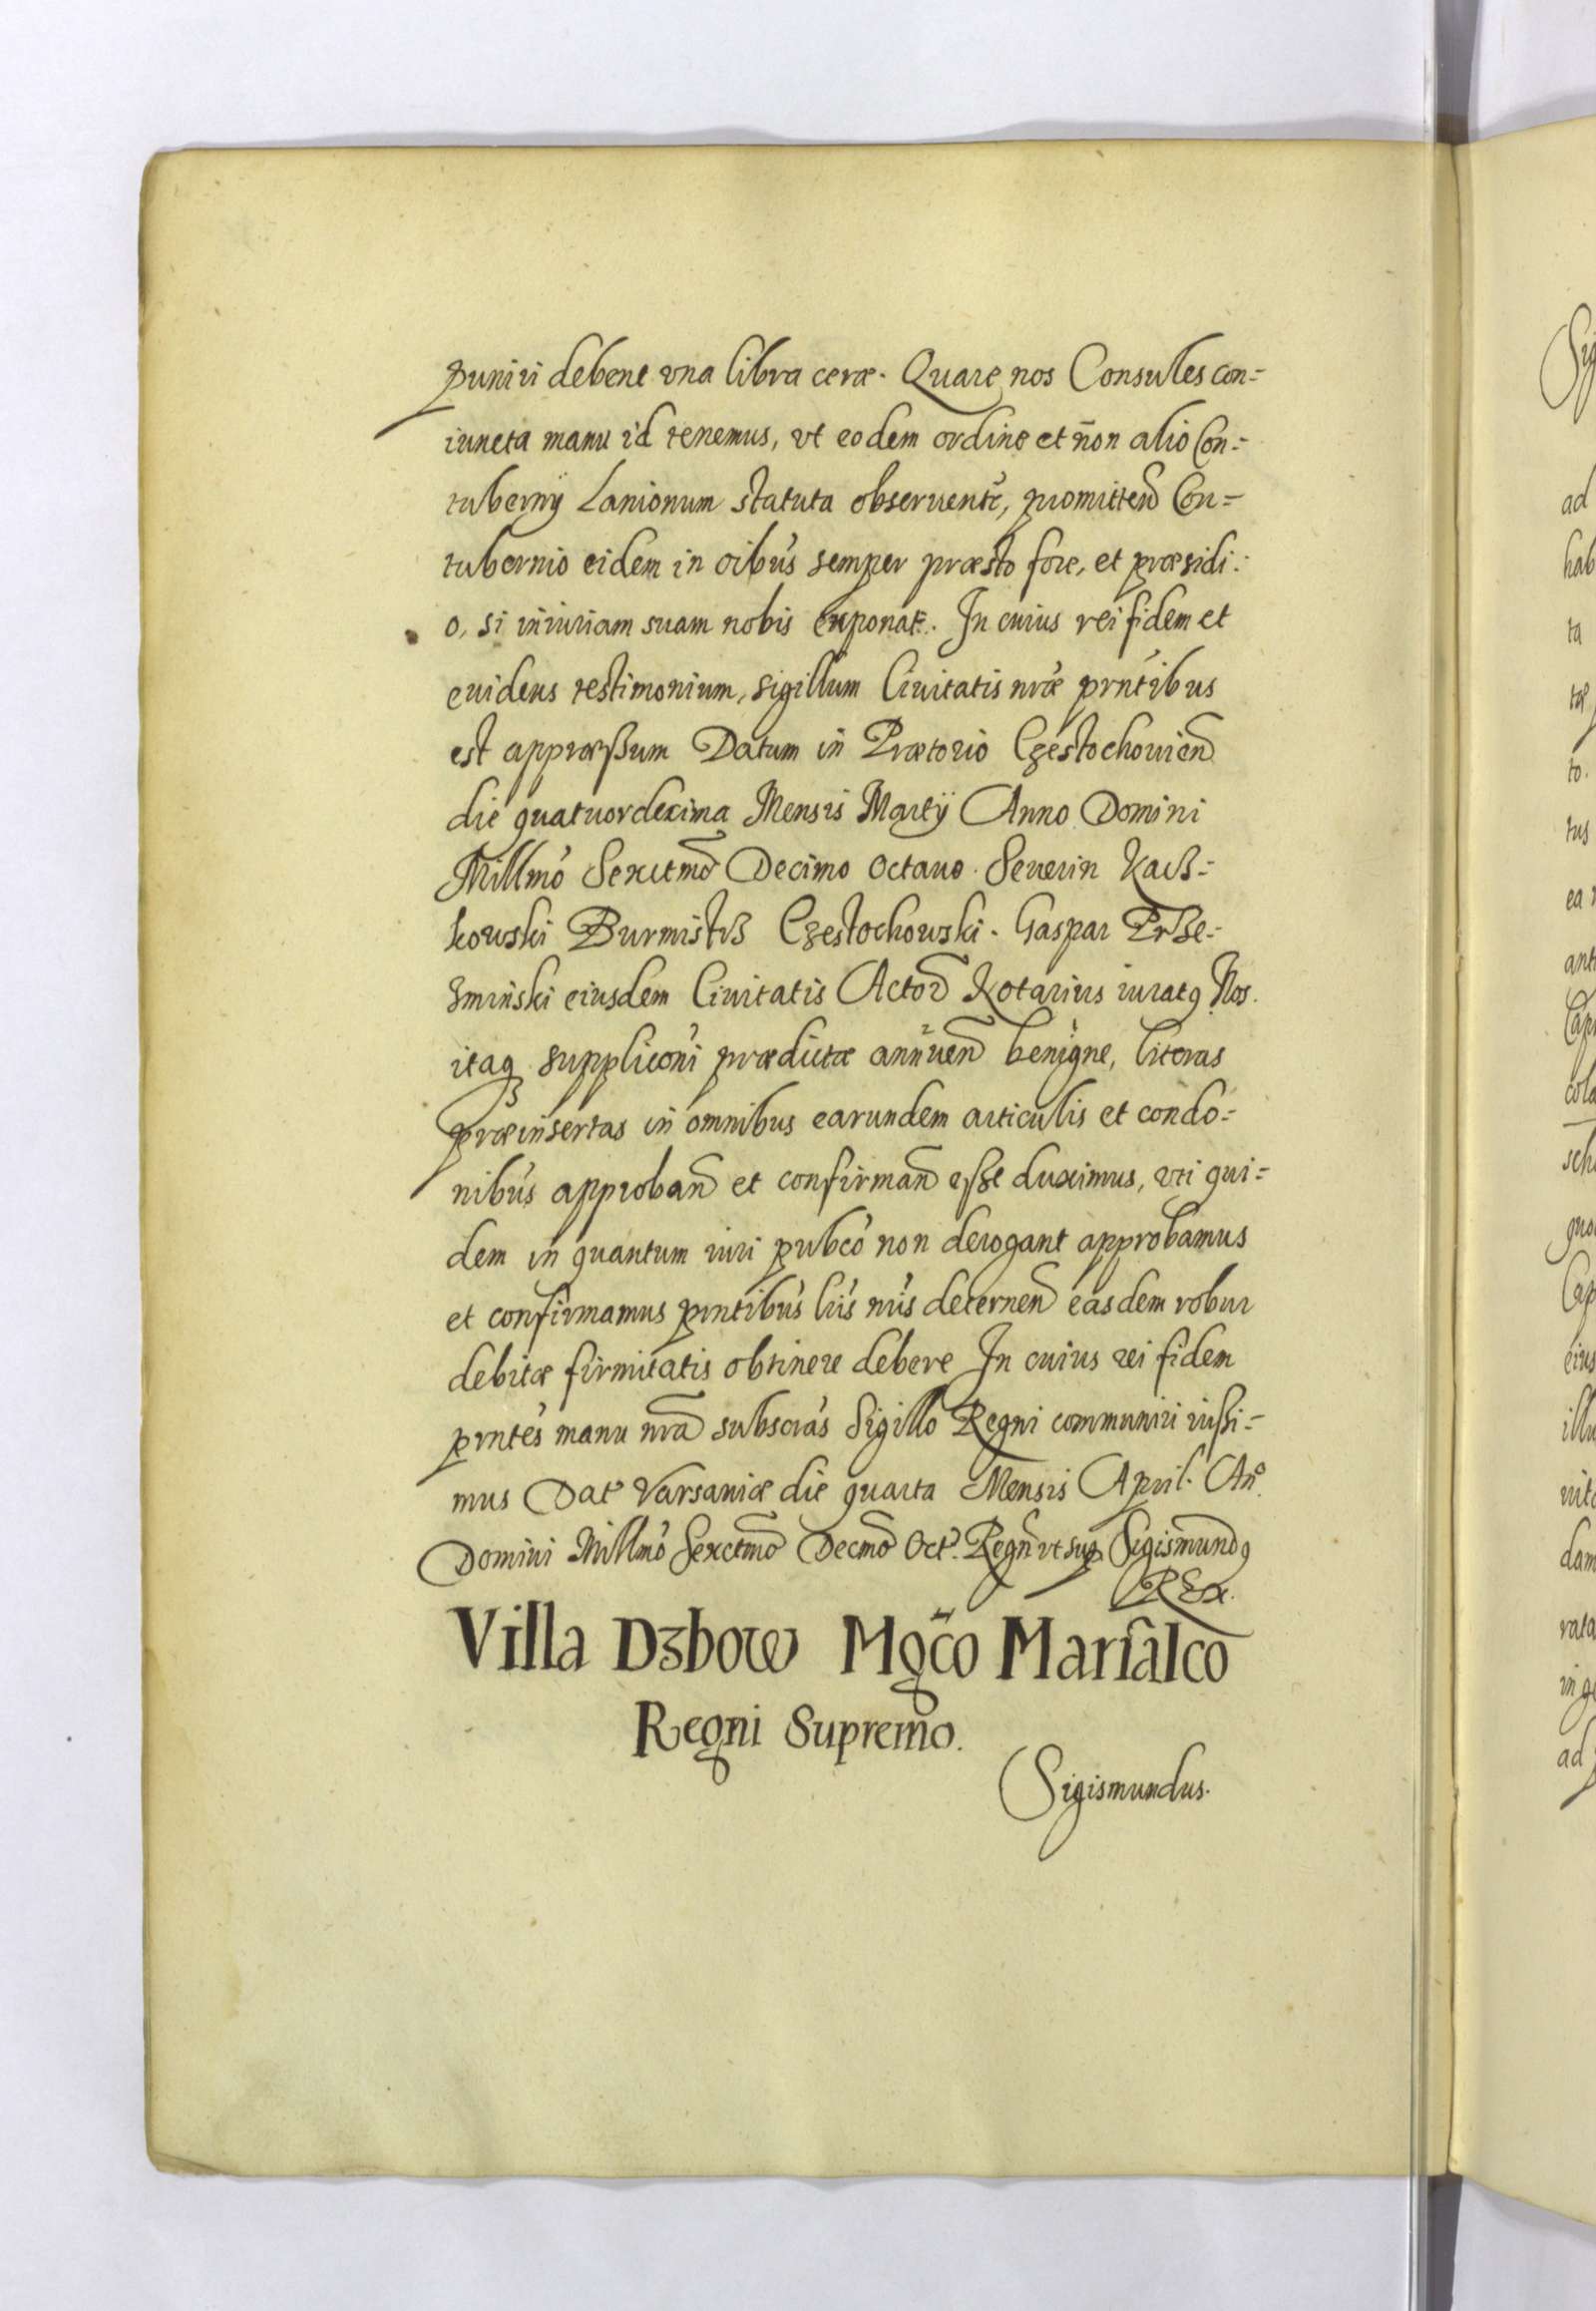 puniri debent vna libra ceræ. Quare nos Consules con=
iuncta manu id tenemus, vt eodem ordine et non alio Con=
tubernÿ Lanionum statuta obseruent~, promitten~ Con=
tubernio eidem in oibus semper præsto fore, et præsidi:
o, si iniuriam suam nobis exponat. In cuius rei fidem et
euidens testimonium, sigillum Ciuitatis nræ prntibus
est appræßum Datum in Prætorio Czestochouien~
die quatuordecima Mensis Martÿ Anno Domini
Millmo Sexctmo Decimo octauo. Seuerin Kaß=
kowski Burmistrz Czestochowski. Gaspar Prze=
zminski eiusdem Ciuitatis Actor~ Notarius iuratq Nos
itaq suppliconi prædictæ annuen~ benigne, literas
præinsertas in omnibus earundem articulis et condo=
nibus approban~ et confirman~ eße duximus, vti qui=
dem in quantum iuri pubco non derogant approbamus
et confirmamus prntibus lris nris decernen~ easdem robur
debitæ firmitatis obtinere debere In cuius rei fidem
prntes manu nra subscras Sigillo Regni communiri iußi=
mus Dat Varsauiæ die quarta Mensis April. Anº
Domini Millmo Sexctmo Decmo Oct. Regn vt sup Sigismundq
REx.
Villa Dzbow Mgco Marsalco
Regni Supremo.
Sigismundus.